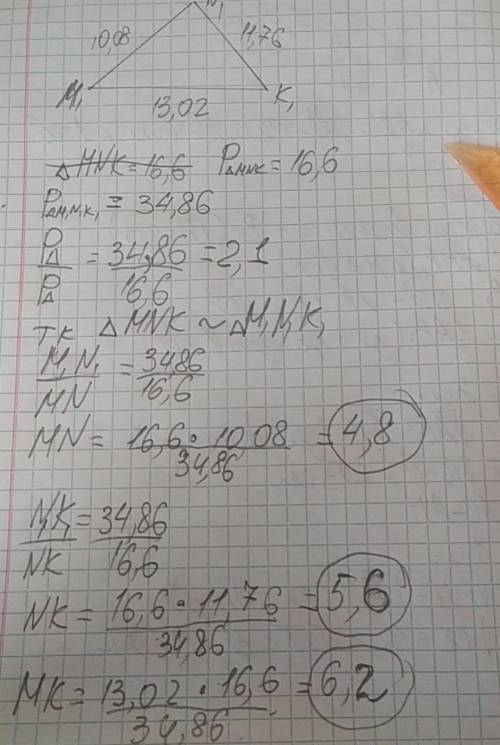 N₁
10,08 11,76
M₁ K₁
13,02
ΔMNK = 16,6 PΔMNK = 16,6
PΔM₁N₁K₁ = 34,86
PΔ/PΔ = 34,86/16,6 = 2,1
т.к ΔMNK ~ ΔM₁N₁K₁
M₁N₁/MN = 34,86/16,6
MN = 16,6 · 10,08/34,86 = 4,8
N₁K₁/NK = 34,86/16,6
NK = 16,6 · 11,76/34,86 = 5,6
MK = 13,02 · 16,6/34,86 = 6,2